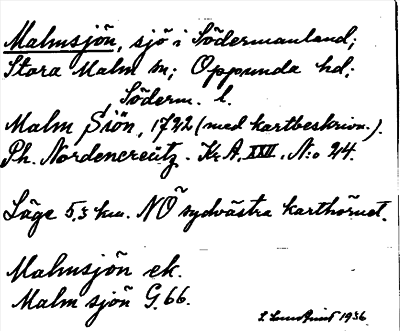 Malmsjön, sjö i Södermanland;
Stora Malm sn; Oppunda hd;
Söderm. l.
Malm Siön, 1722 (med kartbeskrivn.).
Ph. Nordencreütz. Kr. A. XXII. N:o 24.
Läge 5,5 km. NÖ sydvästra karthörnet.
Malmsjön ek.
Malm sjön G. 66.
1936